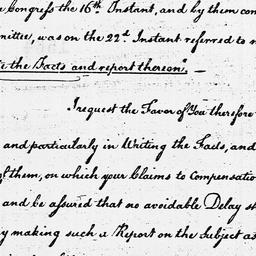 Congress the 16th Instant, and by them com
mittee, was on the 22d Instant referred to
the Facts and report thereon". —
I request the Favor of You therefore
and particularly in Writing the Facts, and
them, on which your Claims to Compensatio
and be assured that no avoidable Delay s
making such a Report on the Subject as